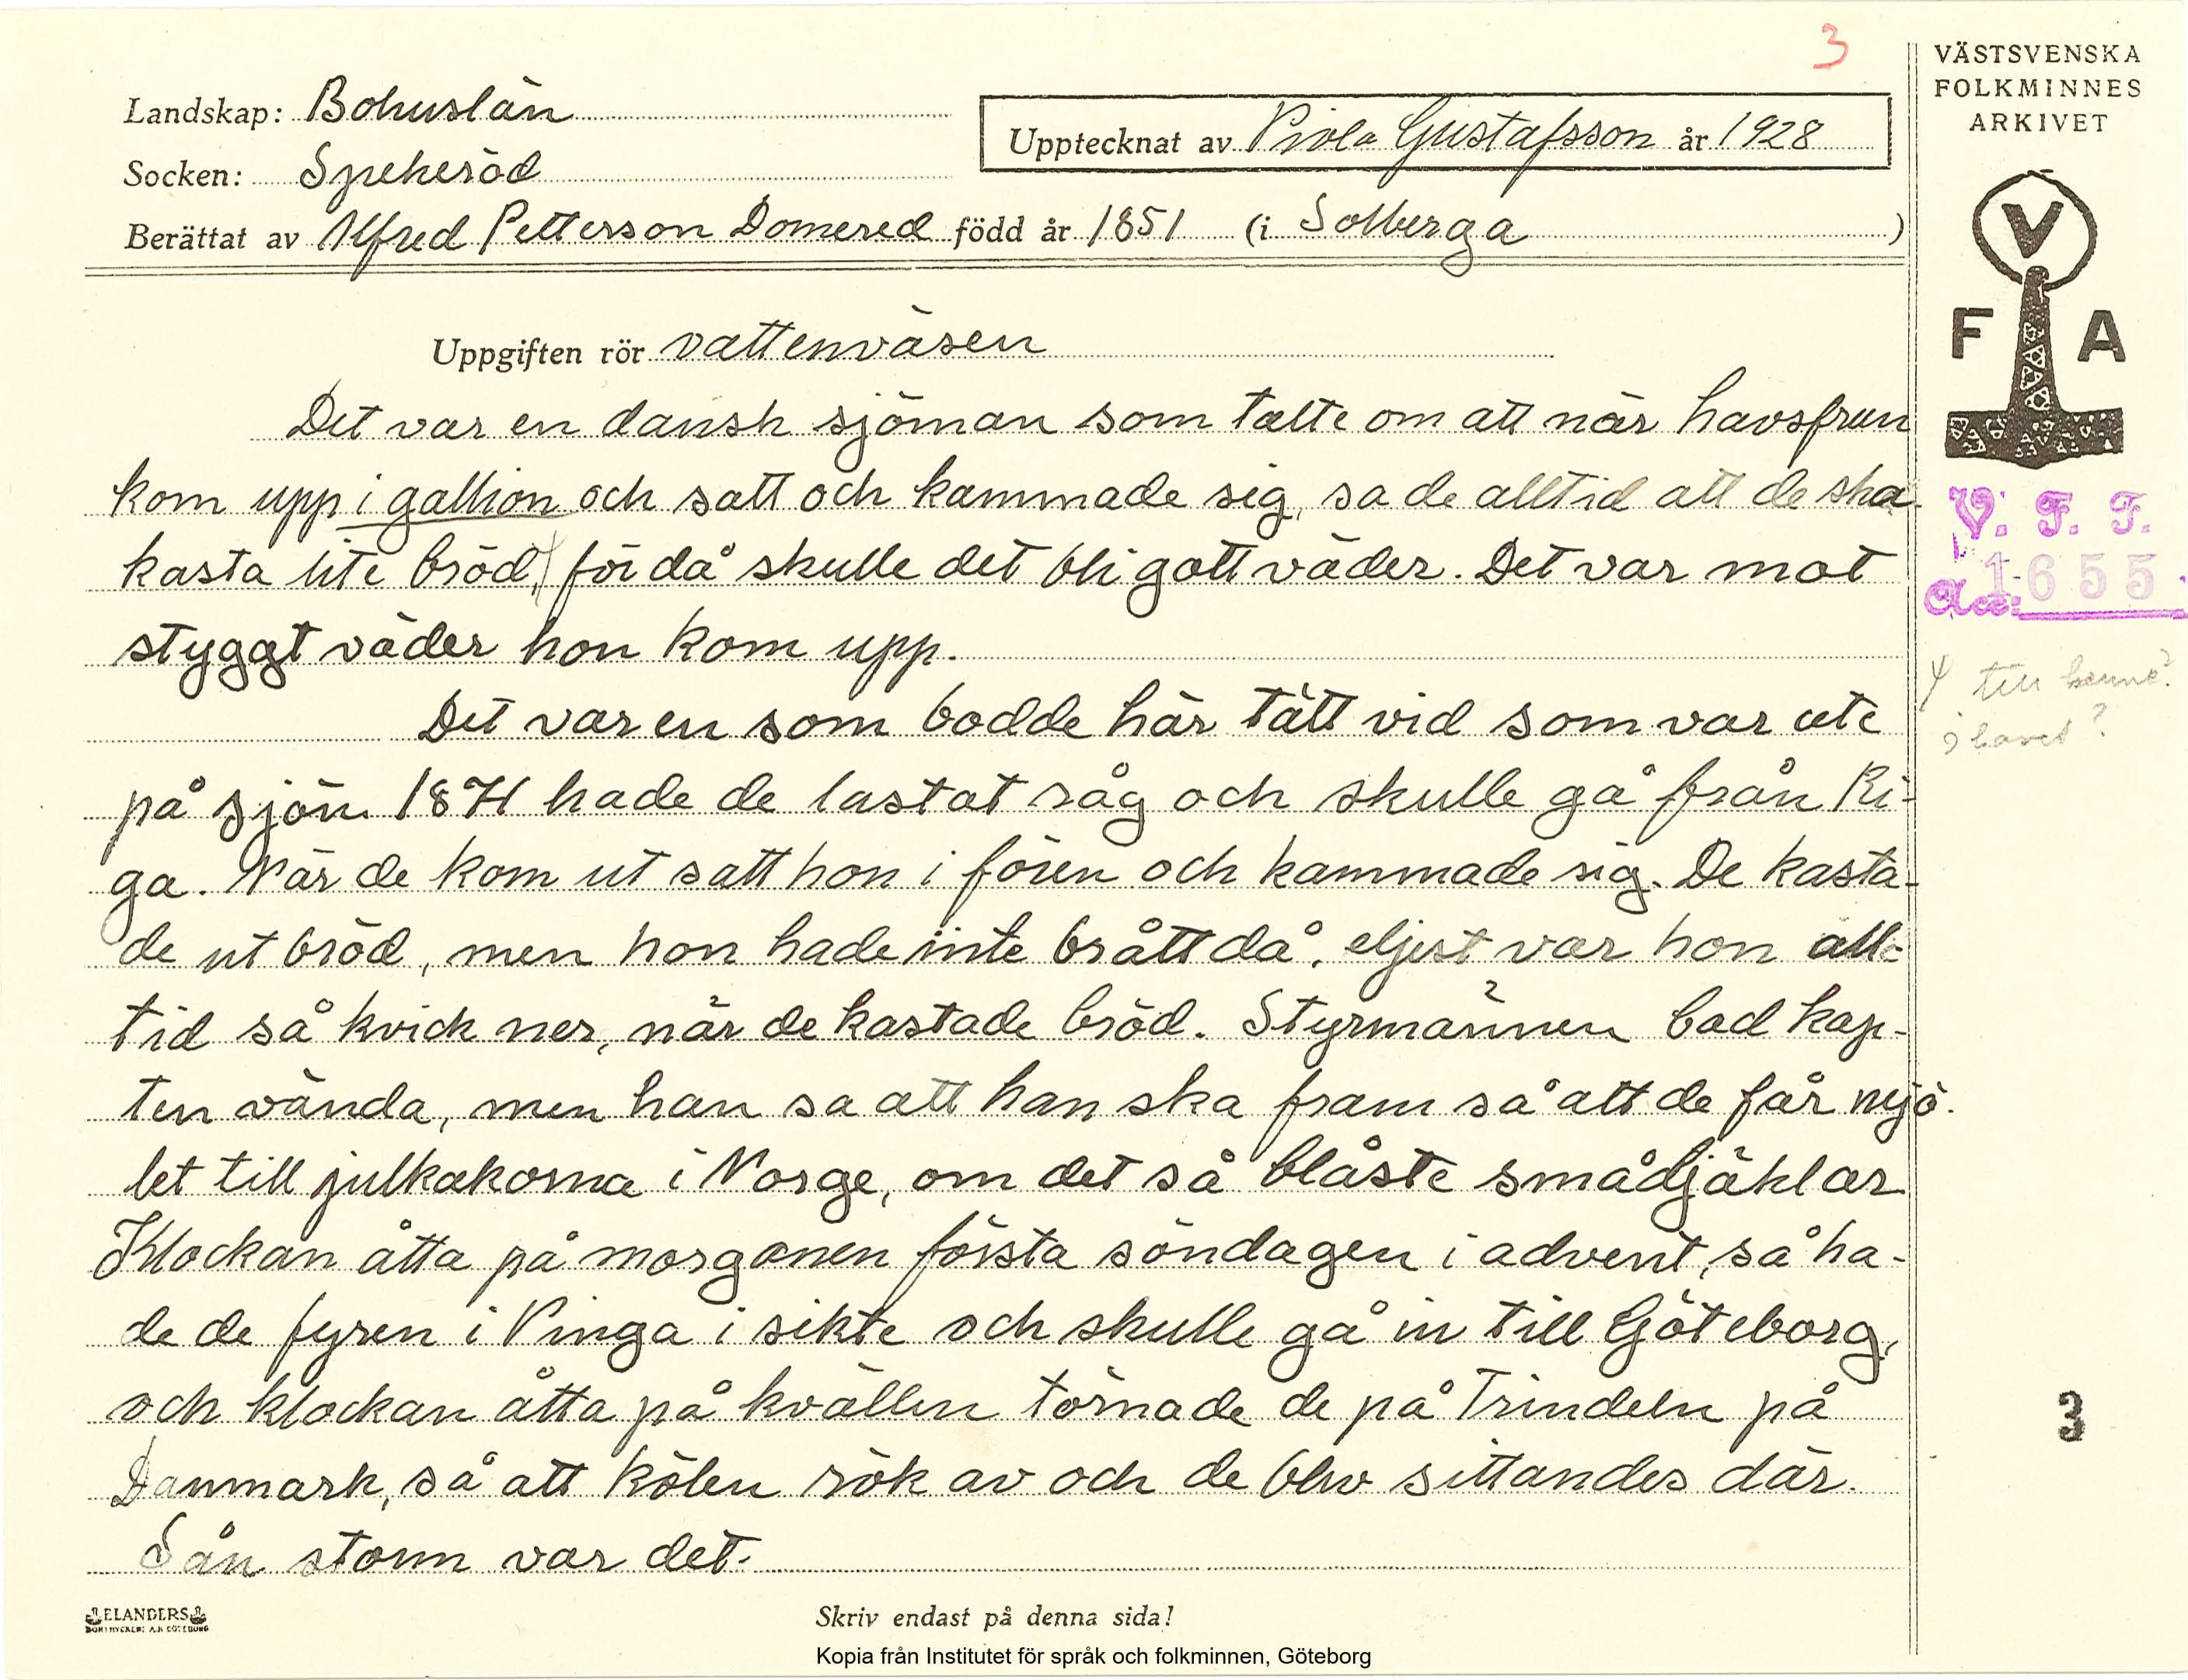 3
VÄSTSVENSKA
FOLKMINNES
ARKIVET
Landskap: Bohuslän
Upptecknat av Viola Gustafsson år 1928
Socken: Spekeröd
Berättat av Alfred Petterson Domered född år 1851 (i Solberga)
V
F A
Uppgiften rör vattenväsen
Det var en dansk sjöman som talte om att när havsfrun
kom upp i gallion och satt och kammade sig, sa de alltid att de ska
kasta lite bröd, för då skulle det bli gott väder. Det var mot
styggt väder hon kom upp.
V. F. F.
Acc: 1655
till henne?
i havet?
Det var en som bodde här tätt vid som var ute
på sjön. 1871 hade de lastat råg och skulle gå från Ri-
ga. När de kom ut satt hon i fören och kammade sig. De kasta-
de ut bröd, men hon hade inte brått då, eljest var hon all-
tid så kvick ner, när de kastade bröd. Styrmännen bad kap-
ten vända, men han sa att han ska fram så att de får mjö-
let till julkakorna i Norge, om det så blåste smådjäklar
Klockan åtta på morgonen första söndagen i advent, så ha-
de de fyren i Vinga i sikte och skulle gå in till Göteborg,
och klockan åtta på kvällen törnade de på Trindeln på
Danmark, så att kölen rök av och de blev sittandes där.
Sån storm var det.
3
ELANDERS
Skriv endast på denna sida!
Kopia från Institutet för språk och folkminnen, Göteborg